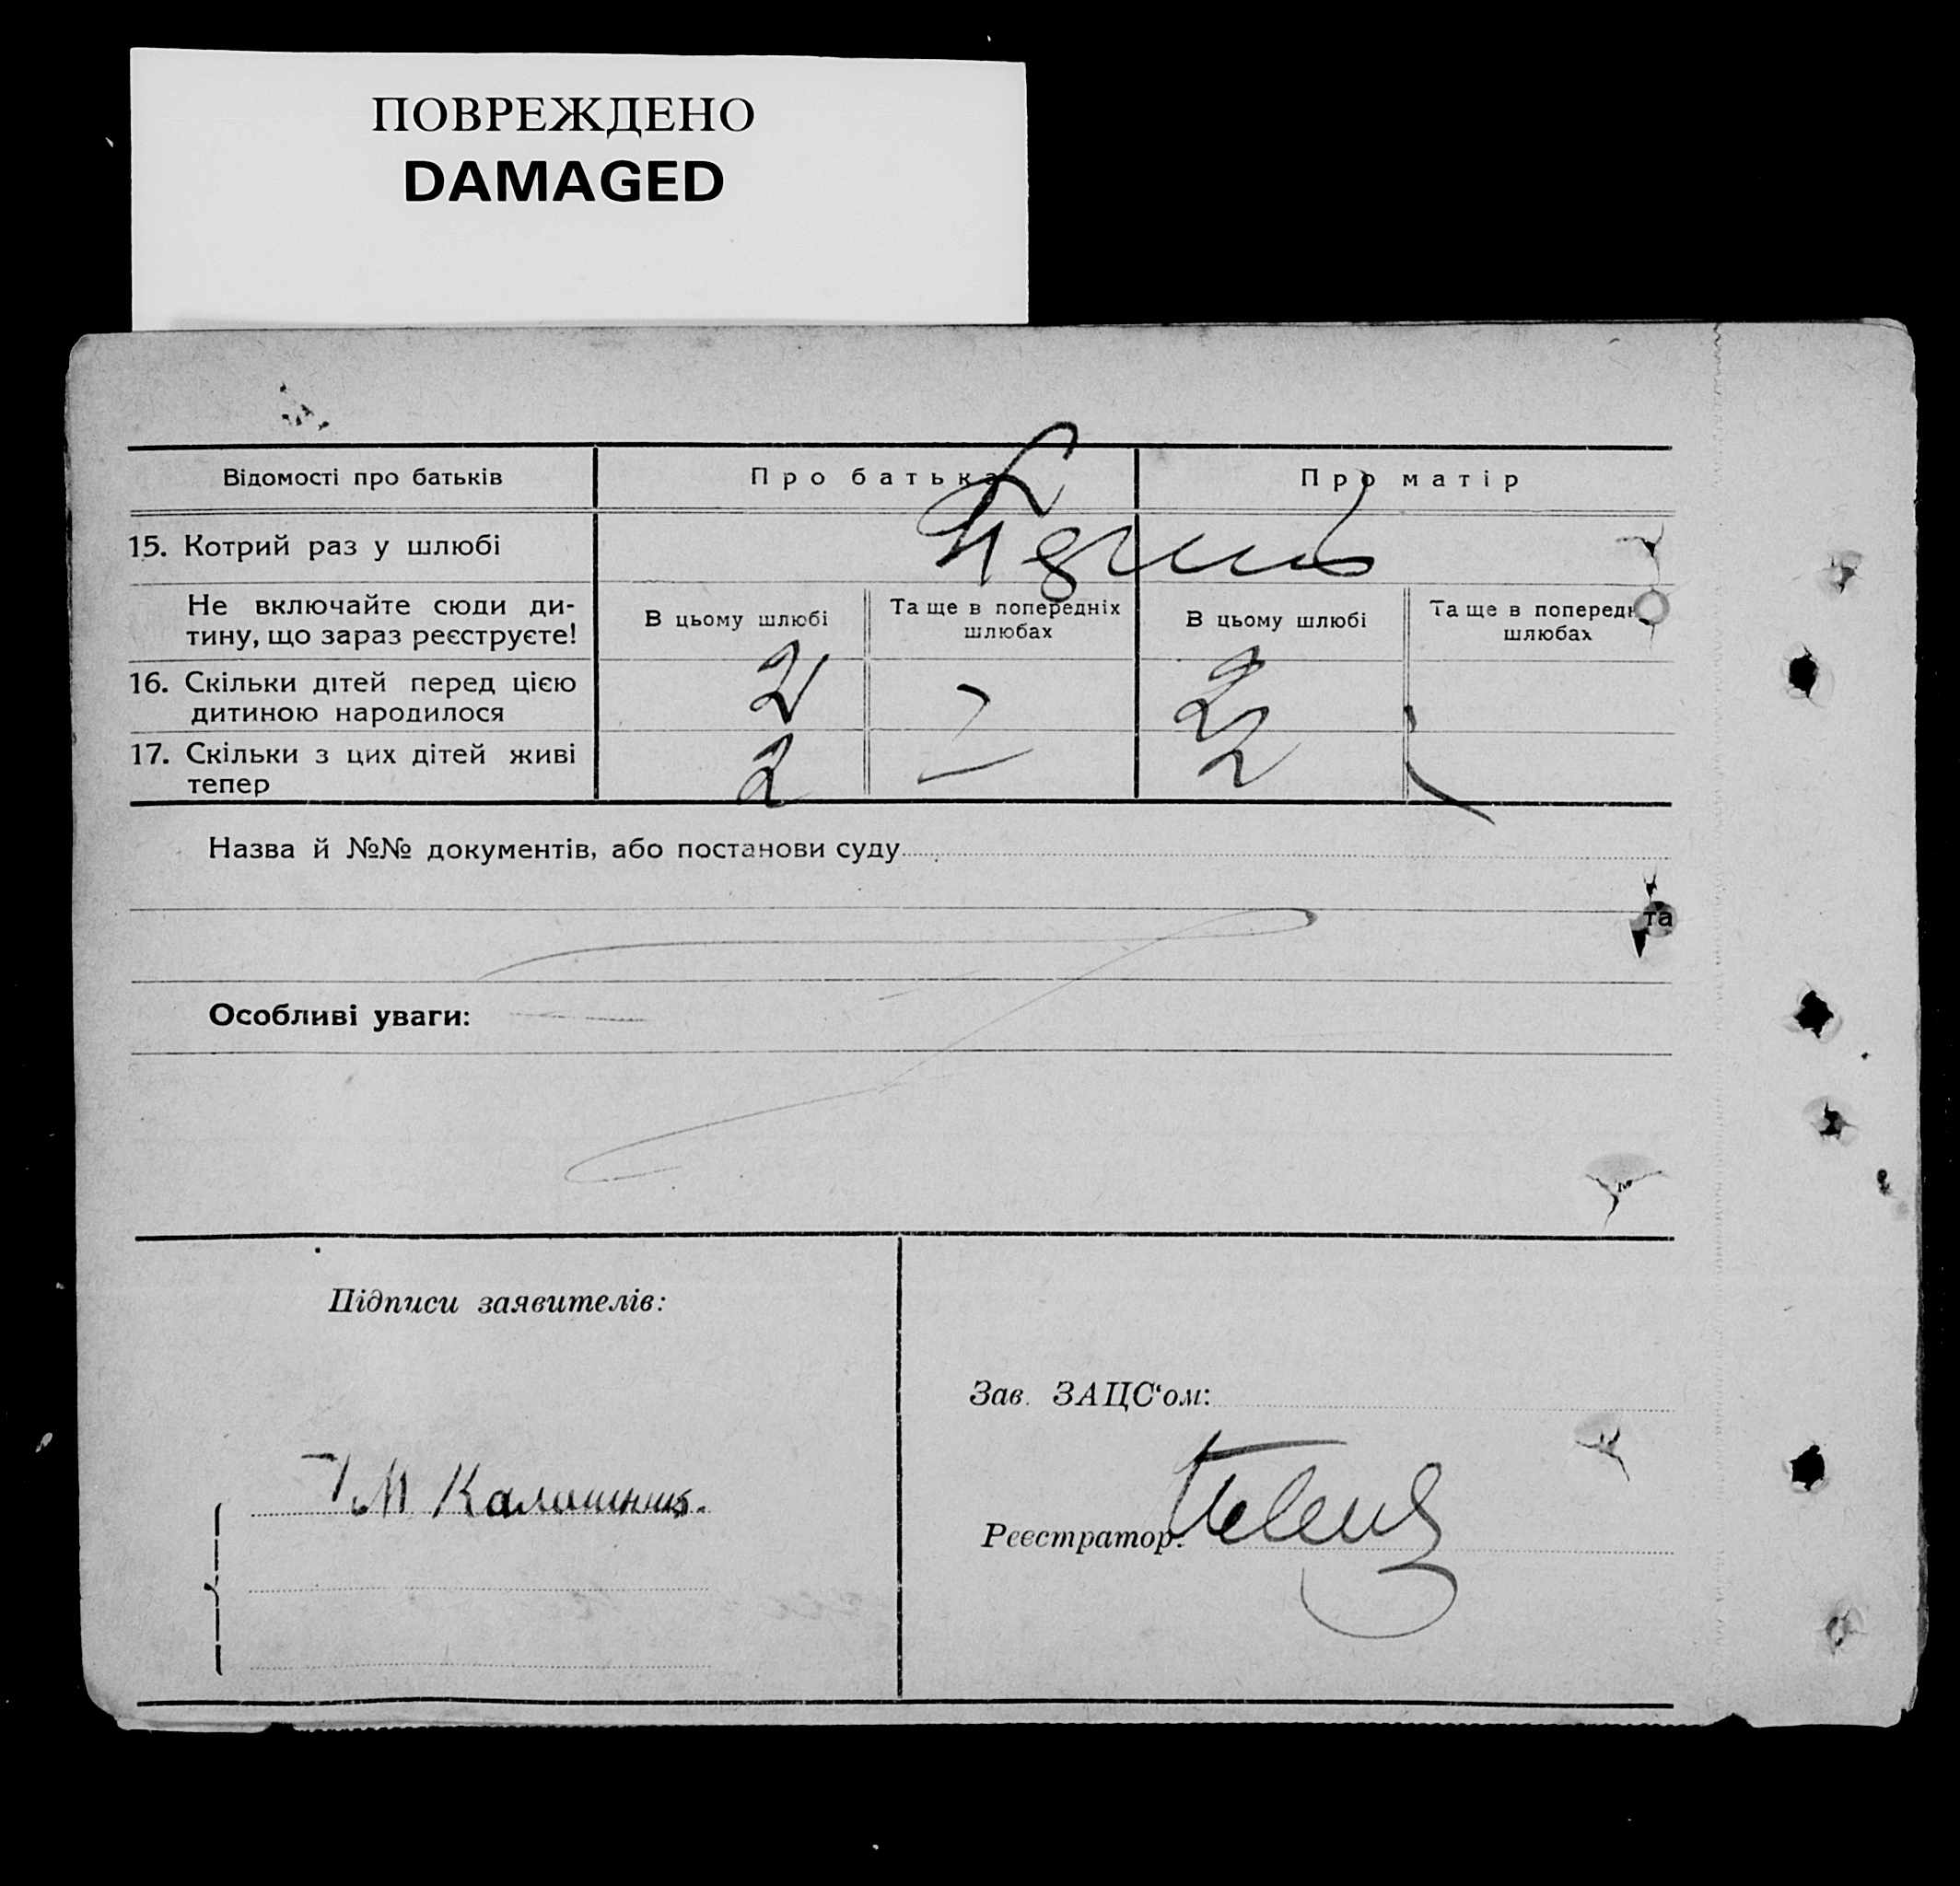 ПОВРЕЖДЕНО
DAMAGED
Відомості про батьків
Про батька
Про матір
15. Котрий раз у шлюбі
Не включайте сюди ди-
тину, що зараз реєструєте!
В цьому шлюбі
Та ще в попередніх
шлюбах
В цьому шлюбі
Та ще в поперед
шлюбах
16. Скільки дітей перед цією
дитиною народилося
2
2
17. Скільки з цих дітей живі
тепер
2
2
Назва й №№ документів, або постанови суду
та
Особливі уваги:
Підписи заявителів:
Зав. ЗАЦС‘ом:
Реєстратор: